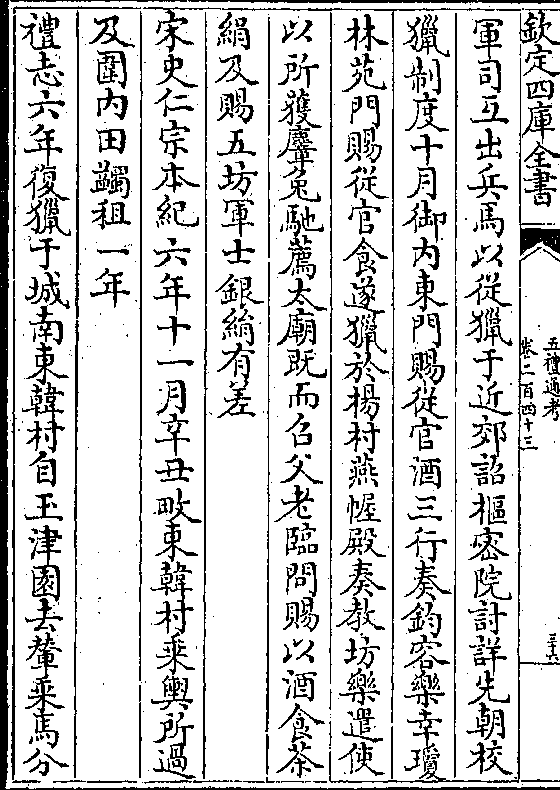 欽定四庫全書
五禮通考
卷二百四十三
三十六
軍司互出兵馬以從獵于近郊詔樞密院討詳先朝校
獵制度十月御内東門賜從官酒三行奏鈞容樂幸瓊
林苑門賜從官食遂獵於楊村燕幄殿奏教坊樂遣使
以所獲麞兔馳薦太廟既而召父老臨問賜以酒食茶
絹及賜五坊軍士銀絹有差
宋史仁宗本紀六年十一月辛丑畋東韓村乘輿所過
及圍内田蠲租一年
禮志六年復獵于城南東韓村自玉津園去輦乘馬分